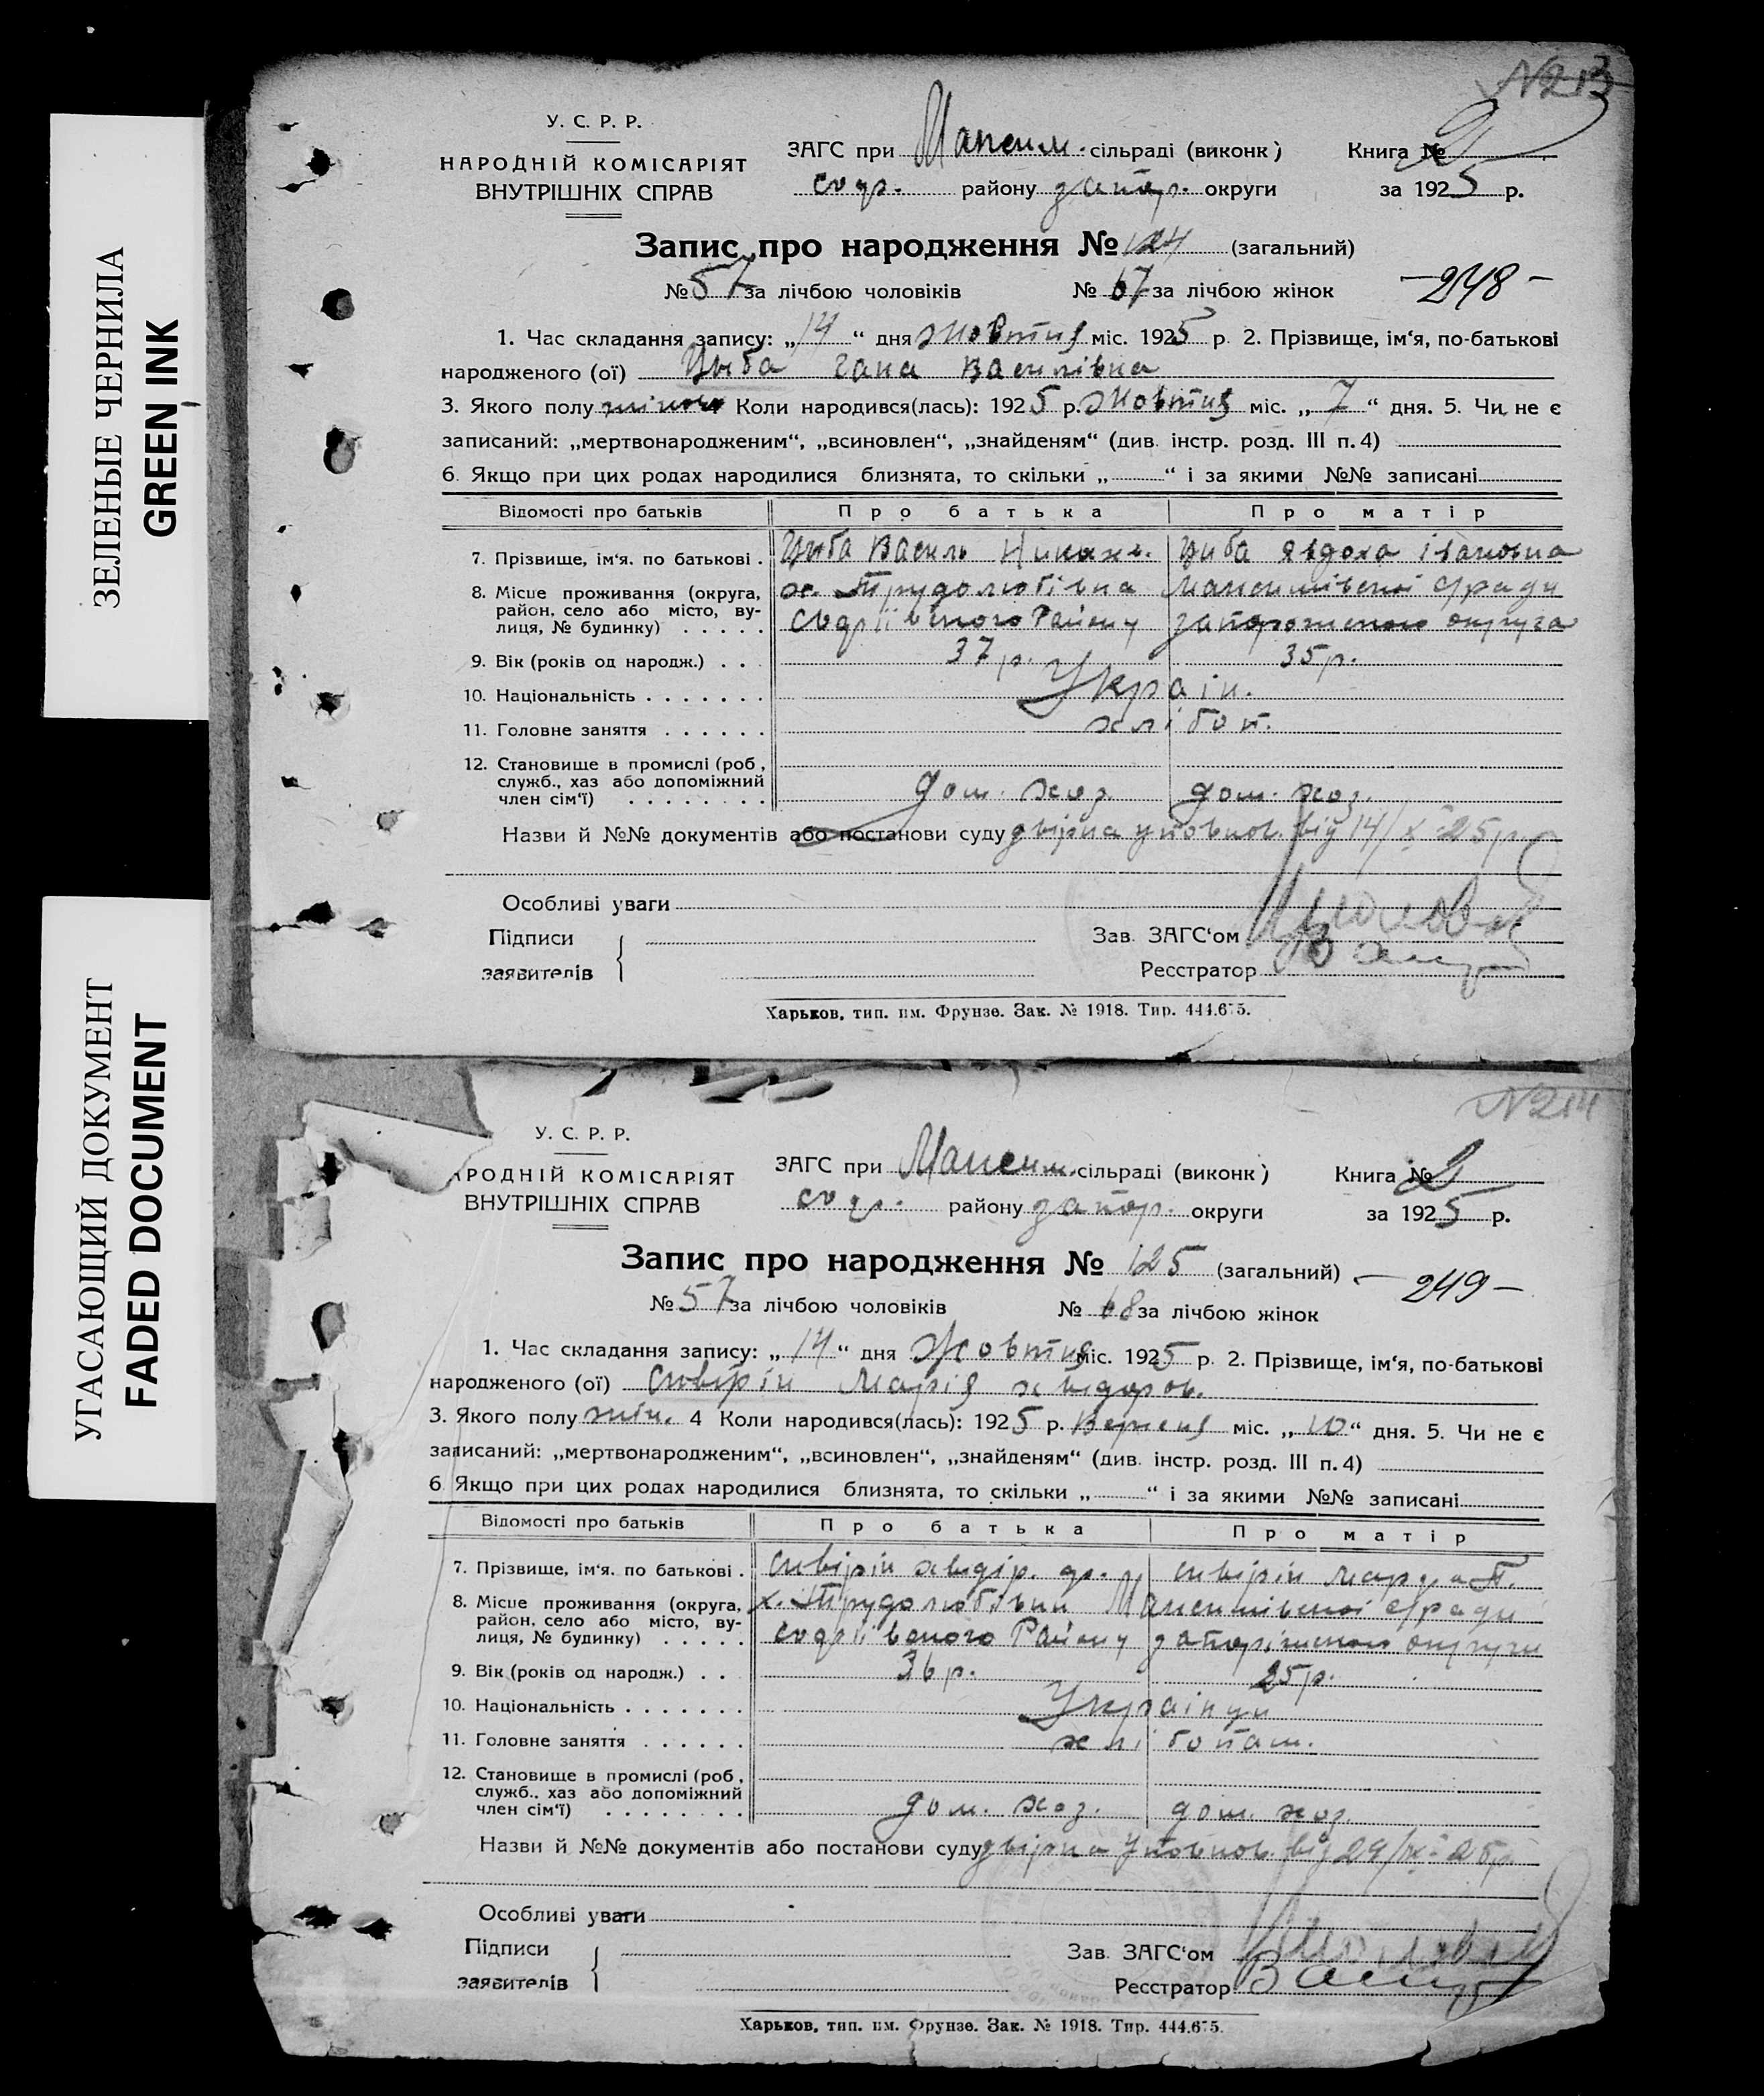 ЗЕЛЕНЫЕ ЧЕРНИЛА
GREEN INK
УГАСАЮЩИЙ ДОКУМЕНТ
FADED DOCUMENT
№213
У. С. Р. Р.
НАРОДНІЙ КОМІСАРІЯТ
ВНУТРІШНІХ СПРАВ
ЗАГС при Максим. сільраді (виконк)
соф. району запор. округи
Книга № 2
за 1925 р.
Запис про народження № 124 (загальний)
№ 57 за лічбою чоловіків № 67 за лічбою жінок
—248—
1. Час складання запису: „14“ дня Жовтня міс. 1925 р. 2. Прізвище, ім‘я, по-батькові
народженого (ої) Циба Гана Василівна
3. Якого полу Коли народився(лась): 1925 р. Жовтня міс. „7“ дня. 5. Чи не є
записаний: „мертвонародженим“, „всиновлен“, „знайденям“ (див. інстр. розд. III п. 4)
6. Якщо при цих родах народилися близнята, то скільки „ “ і за якими №№ записані
Відомості про батьків Про батька Про матір
7. Прізвище, ім‘я. по батькові . Циба Василь Циба Явдоха Івановна
8. Місце проживання (округа, район, село або місто, вулиця, № будинку) х. Трудолюбівка Максимівської с/ради
Софіївського Району округа
9. Вік (років од народж.) . . 37 р. 35 р.
10. Національність Украін.
11. Головне заняття хлібоп.
12. Становище в промислі (роб., служб., хаз або допоміжний член сім‘ї) дом. хоз. дом. хоз.
Назви й №№ документів або постанови суду довірка уповнов. від 14/X-25 р.
Особливі уваги
Підписи
заявителів
Зав. ЗАГС‘ом
Ресстратор
Харьков, тип. им. Фрунзе. Зак. № 1918. Тир. 444.675.
№214
У. С. Р. Р.
АРОДНІЙ КОМІСАРІЯТ
ВНУТРІШНІХ СПРАВ
ЗАГС при Максим. сільраді (виконк)
соф. району запор. округи
Книга № 2
за 1925 р.
Запис про народження № 125 (загальний)
—249—
№ 57 за лічбою чоловіків № 68 за лічбою жінок
1. Час складання запису: „14“ дня Жовтня міс. 1925 р. 2. Прізвище, ім‘я, по-батькові
народженого (ої) Марія
3. Якого полу жін. 4 Коли народився(лась): 1925 р. Вересня міс. „10“ дня. 5. Чи не є
записаний: „мертвонародженим“, „всиновлен“, „знайденям“ (див. інстр. розд. III п. 4)
6 Якщо при цих родах народилися близнята, то скільки „ “ і за якими №№ записані
Відомості про батьків Про батька Про матір
7. Прізвище, ім‘я. по батькові .
8. Місце проживання (округа, район, село або місто, вулиця, № будинку) х. Трудолюбівки Максимівської с/ради
Софіївського Району округи
9. Вік (років од народж.) . . 36 р. 25 р.
10. Національність Украінци
11. Головне заняття хлібопаш.
12. Становище в промислі (роб., служб., хаз або допоміжний член сім‘ї) дом. хоз. дом. хоз.
Назви й №№ документів або постанови суду довірка уповнов. від 29/IX-25 р
Особливі уваги
Підписи
заявителів
Зав. ЗАГС‘ом
Ресстратор
Харьков, тип. им. Фрунзе. Зак. № 1918. Тир. 444.675.